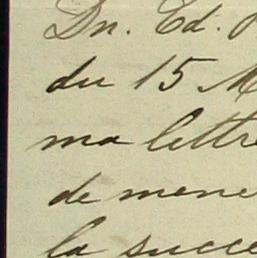 Dn. Ed.
du 15 M
ma lettre
de mene
la succe